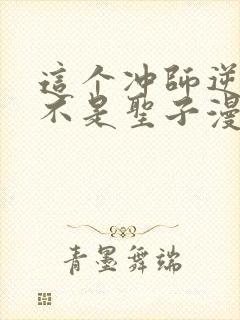 這个冲師逆
不是聖子漫
青墨舞端